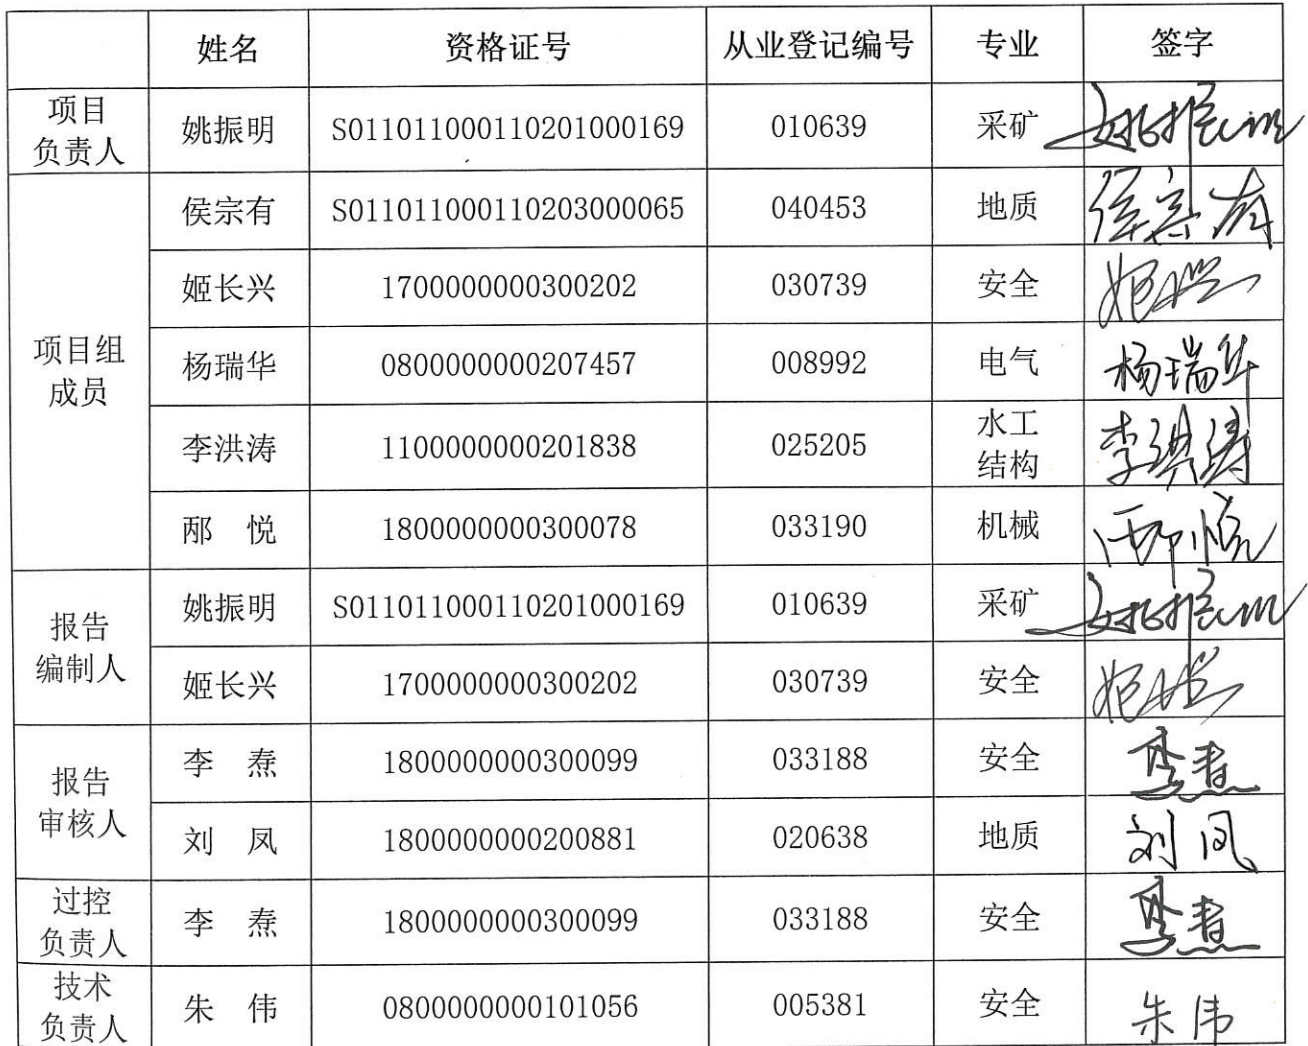 姓名 资格证号 从业登记编号 专业 签字
项目
负责人 姚振明 S011011000110201000169 010639 采矿 姚振明
侯宗有 S011011000110203000065 040453 地质 侯宗有
姬长兴 1700000000300202 030739 安全 姬长兴
项目组
成员
杨瑞华 0800000000207457 008992 电气 杨瑞华
李洪涛 1100000000201838 025205 水工
结构 李洪涛
邴 悦 1800000000300078 033190 机械 邴悦
报告
编制人
姚振明 S011011000110201000169 010639 采矿 姚振明
姬长兴 1700000000300202 030739 安全 姬长兴
报告
审核人
李 焘 1800000000300099 033188 安全
刘 凤 1800000000200881 020638 地质 刘凤
过控
负责人 李 焘 1800000000300099 033188 安全
技术
负责人 朱 伟 0800000000101056 005381 安全 朱伟